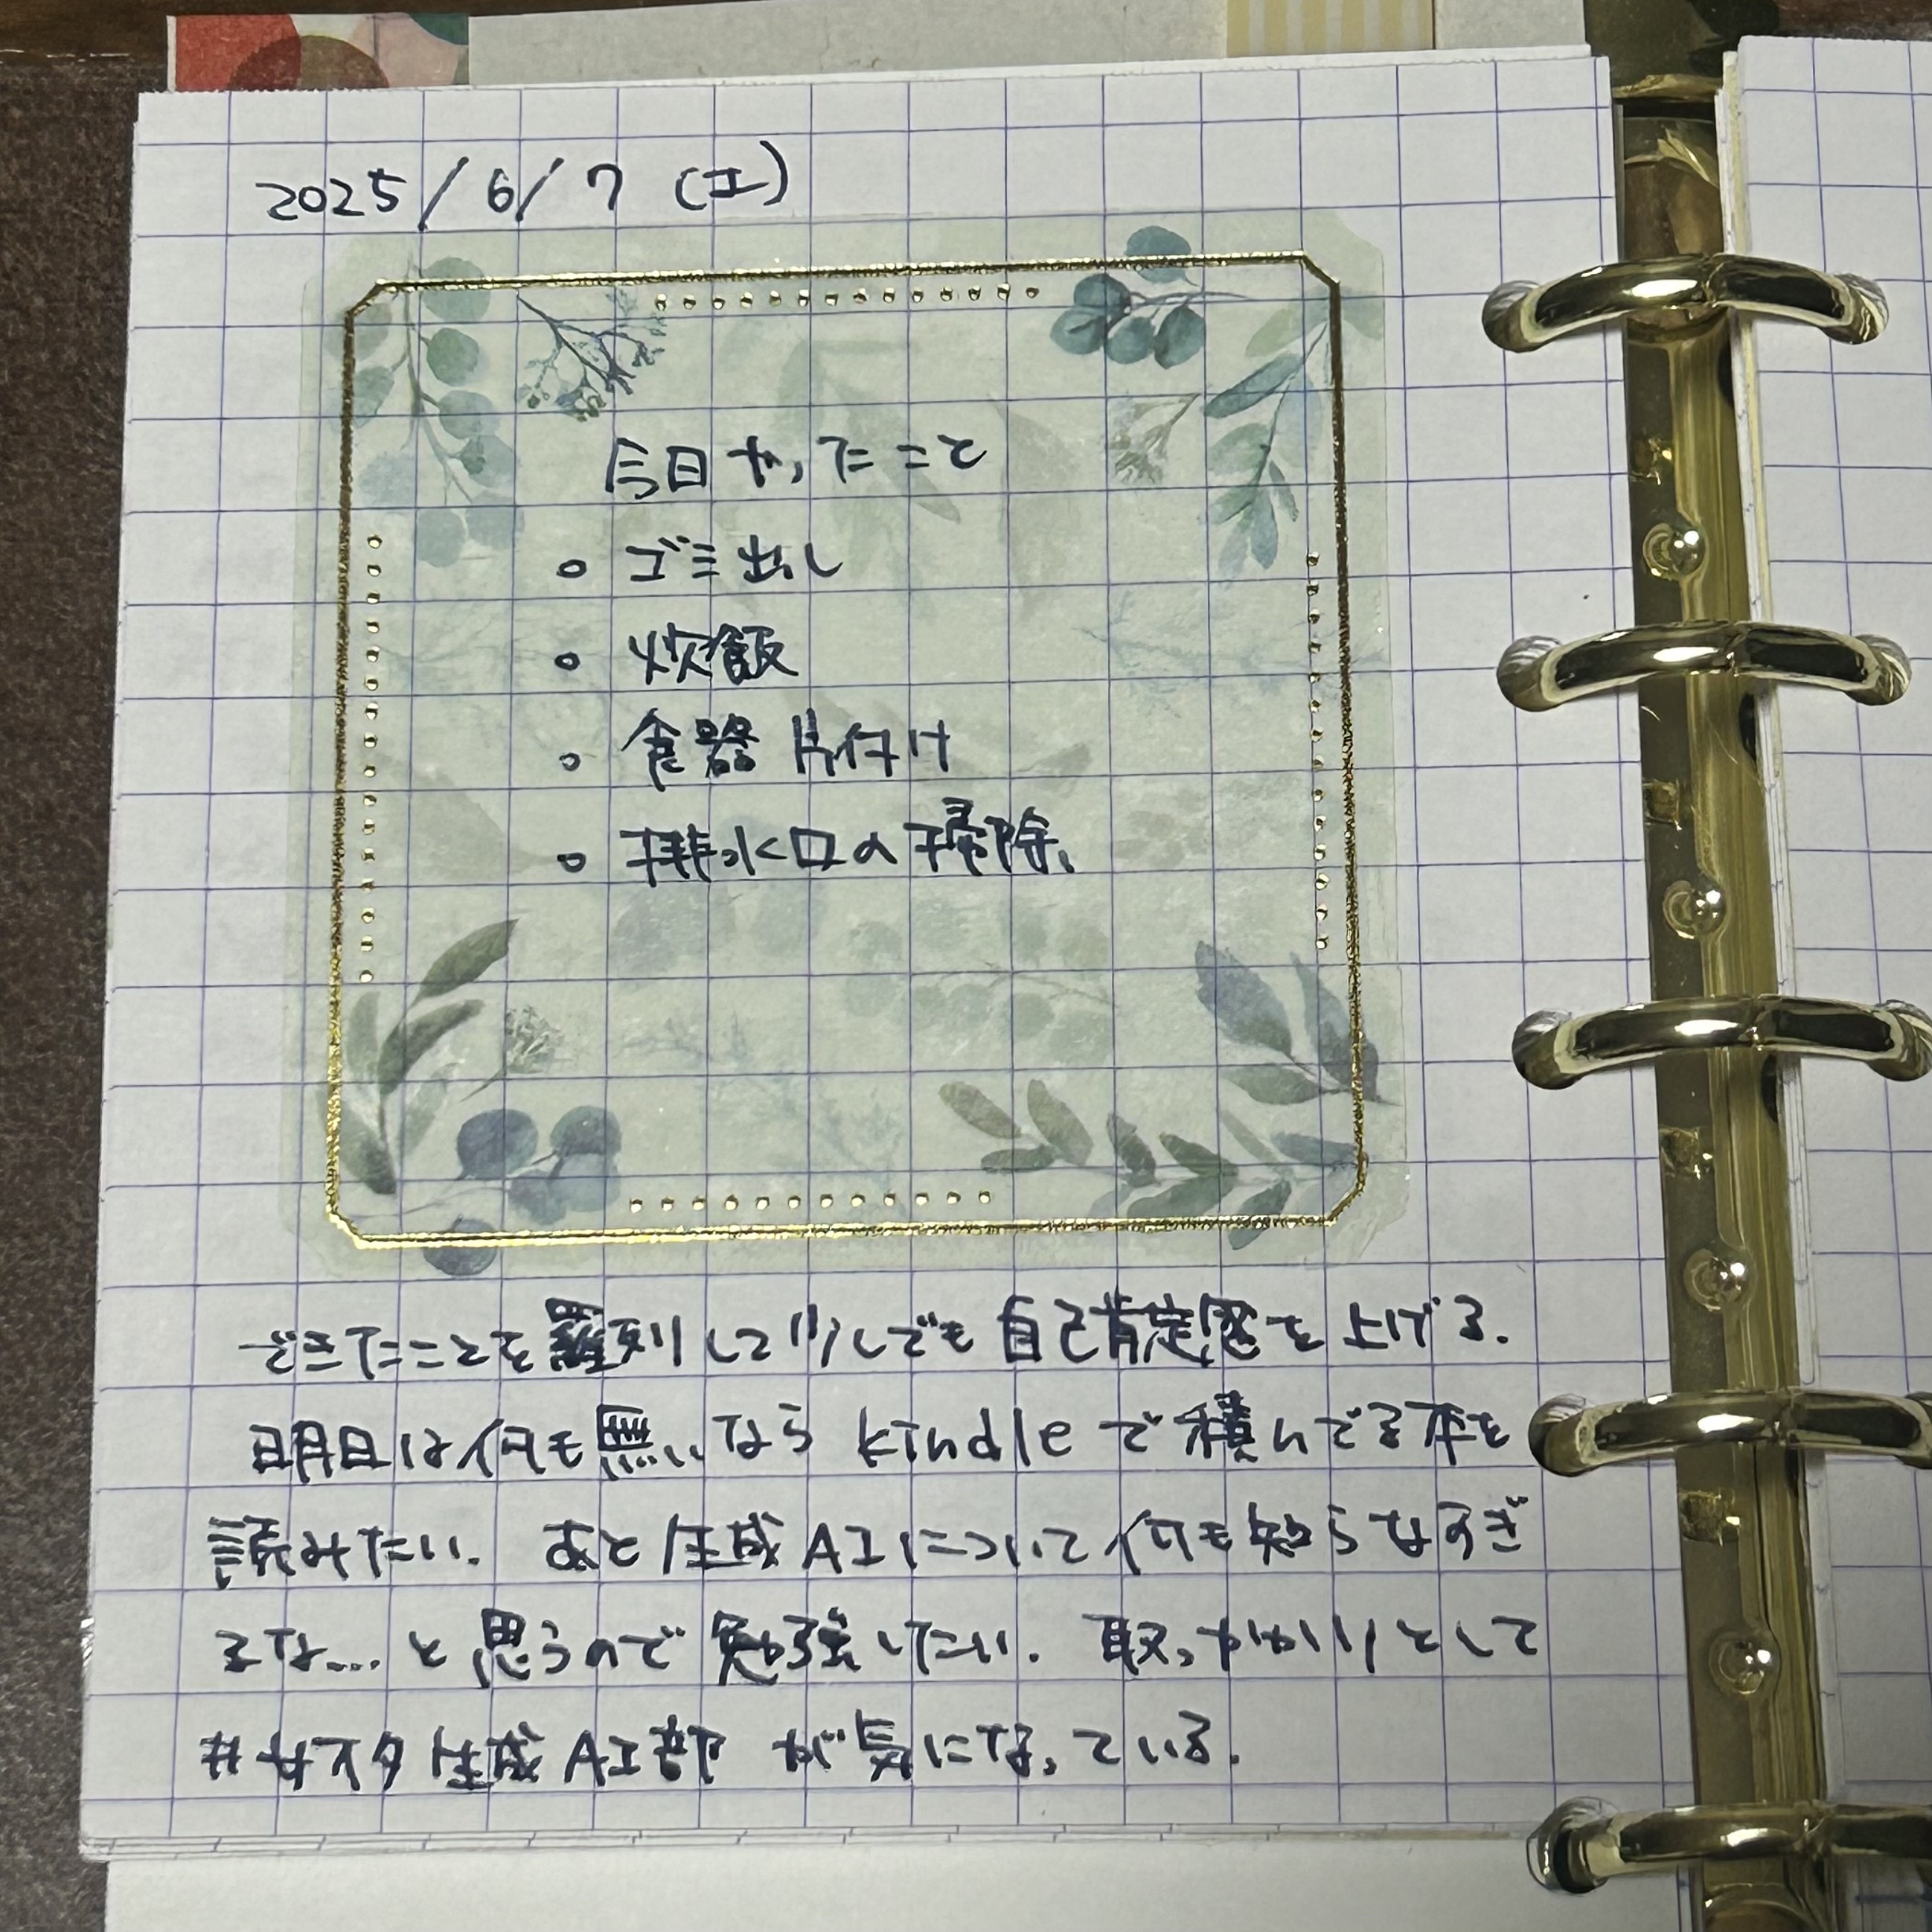 2025/6/7 (土)
今日やったこと
○ ゴミ出し
○ 炊飯
○ 食器片付け
○ 排水口の掃除、
できたことを羅列して少しでも自己肯定感を上げる.
明日は何も無いなら kindle で積んでる本を
読みたい. あと生成AIについて何も知らなすぎ
るな... と思うので勉強したい. 取っかかりとして
#サスタ生成AI部 が気になっている.